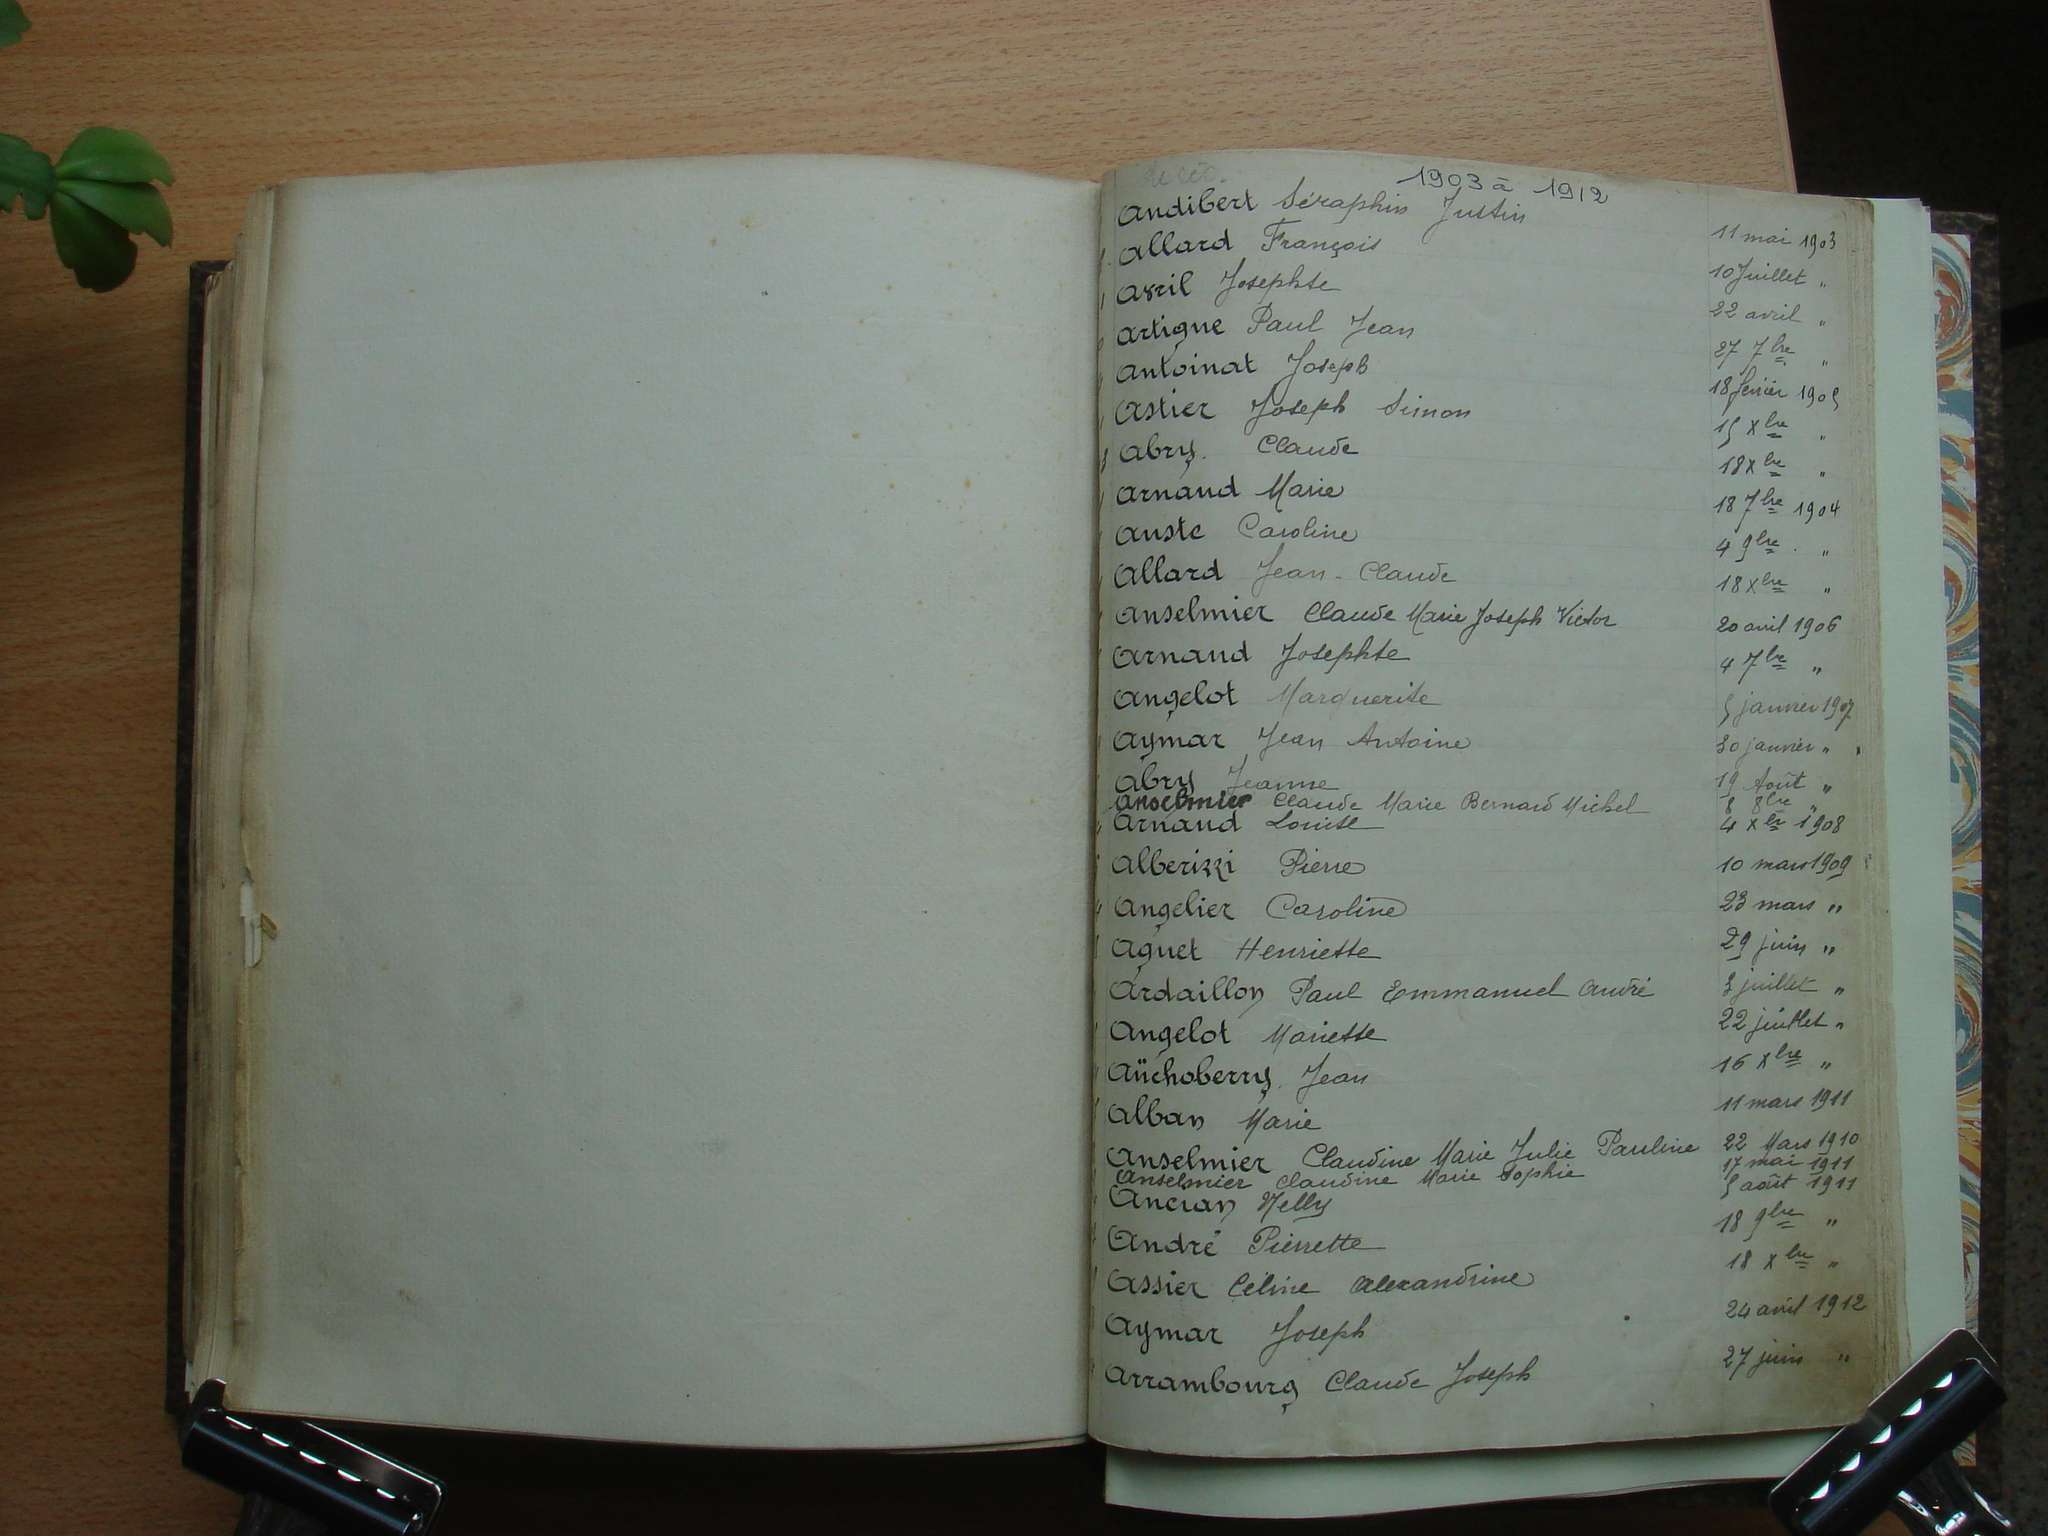 1903 à 1912
Audibert Séraphin Justin 11 mai 1903
Allard François 10 Juillet "
Avril Josephte 22 avril "
Artigne Paul Jean 27 7bre "
Antoinat Joseph 18 fevier 1905
Astier Joseph Simon 15 Xbre "
Abry Claude 18 Xbre "
Arnaud Marie 18 7bre 1904
Auste Caroline 4 9bre "
Allard Jean-Claude 18 Xbre "
Anselmier Claude Marie Joseph Victor 20 avril 1906
Arnaud Josephte 4 7bre "
Angelot Marguerite 5 janvier 1907
Aymar Jean Antoine 30 janvier "
Abry Jeanne 19 Août "
Anselmier Claude Marie Bernard Michel 8 8bre "
Arnaud Louise 4 Xbre 1908
Alberizzi Pierre 10 mars 1909
Angelier Caroline 23 mars "
Aguet Henriette 29 juin "
Ardaillon Paul Emmanuel André 3 juillet "
Angelot Mariette 22 juillet "
Aüchoberry Jean 16 Xbre "
Alban Marie 11 mars 1911
Anselmier Claudine Marie Julie Pauline 22 Mars 1910
Anselmier Claudine Marie Sophie 17 mai 1911
Ancian Nelly 5 août 1911
André Pierrette 18 9bre "
Assier Céline Alexandrine 18 Xbre "
Aymar Joseph 24 avril 1912
Arrambourg Claude Joseph 27 juin "